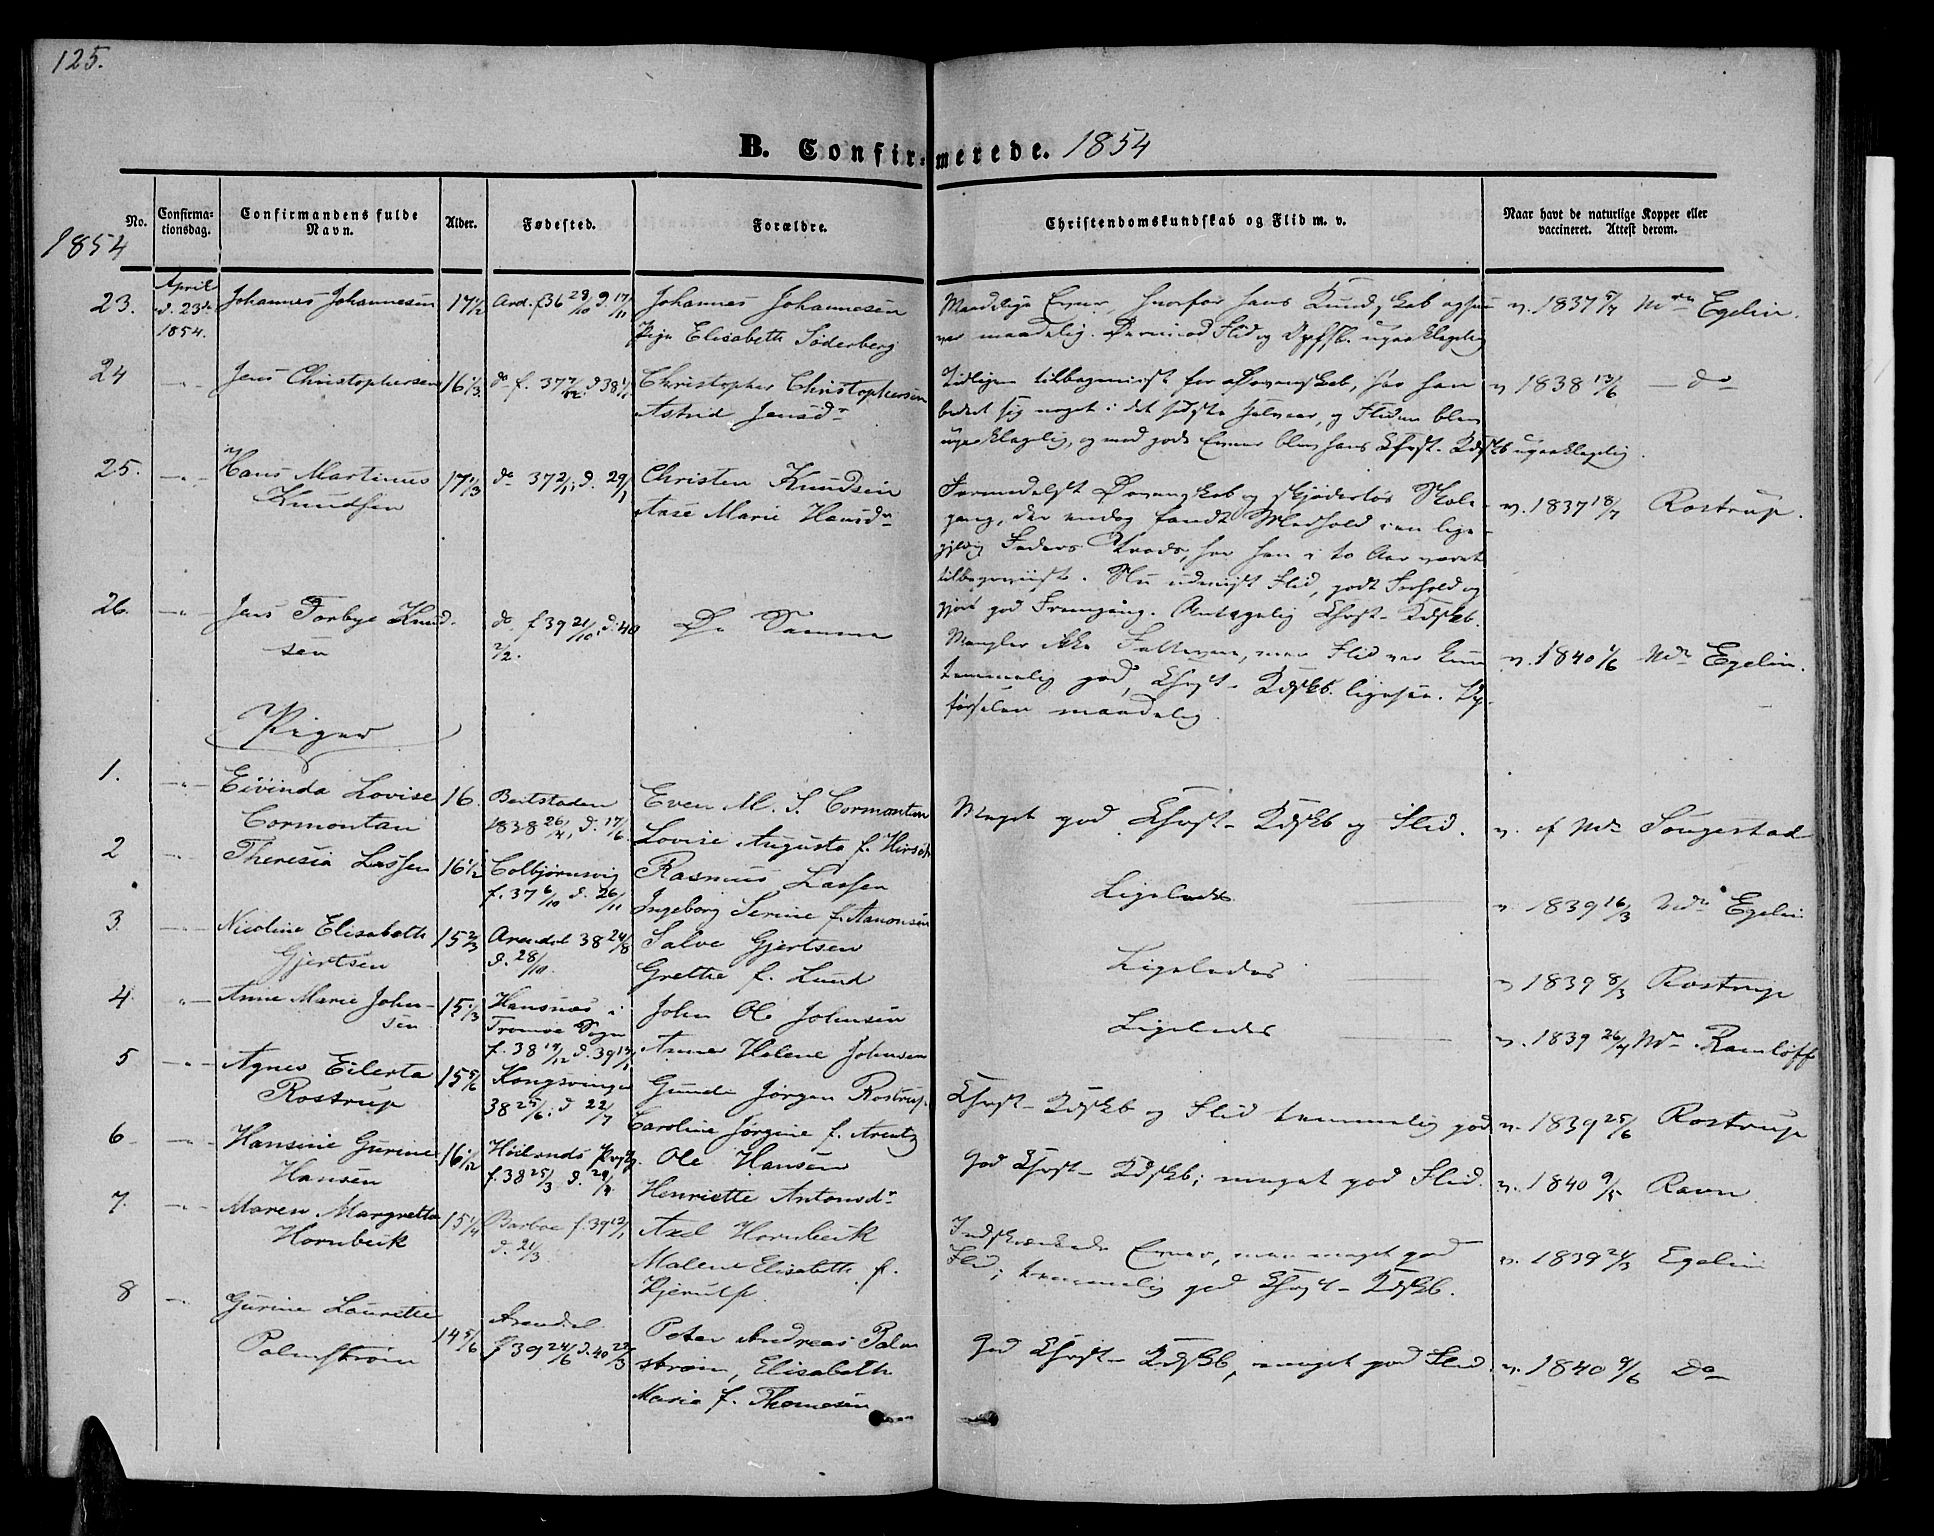 125.
B. Confirmerede. 1854
1854
No. Confirmationsdag. Confirmandens fulde Navn. Alder. Fødested. Forældre. Christendomskundskab og Flid m. v. Naar havt de naturlige Kopper eller vaccineret. Attest derom.
23. April d. 23de 1854. Johannes Johannesen 17 1/2 Ard. f 36 28/10 d. 17/11 Johannes Johannesen
Pige Elisabeth Söderberg
Maadelige Evner, hvorfor hans Kundskab ogsaa
var maadelig. Derimod Flid og Opfsl. upaaklagelig
v. 1837 5/7 Mdm Egelin.
24 Jens Christophersen 16 1/3 do f. 37 7/12 d 38 1/1 Christopher Christophersen
Astrid Jensdr
Tidligere tilbageviist for Dovenskab, har han
bedret sig noget i det sidste Halvaar, og Fliden blev
upaaklagelig, og med gode Evner blev hans Chrst. Kdskb upaaklagelig.
v 1838 13/6 do
25. Hans Martinus
Knudsen
17 1/3 do 37 2/1, d. 29/1 Christen Knudsen
Anse Marie Hansdr
Formedelst Dovenskab og skjødesløs Skole-
gang, der endog fandt Medhold i en lige-
gyldig Faders Trods, har han i to Aar været
tilbageviist. Nu udviist Flid, godt Forhold og
gjort god Fremgang. Antagelig Chrst. Kdskb.
v. 1837 18/7 Rostrup.
26. Jens Torbye Knud-
sen
do f 39 21/10, d. 40
2/2.
De Samme
Mangler ikke Fatteevne, men Flid var kun
temmelig god, Chrst. Kdskb. ligesaa. Op-
førselen maadelig.
v. 1840 1/6 Mdm Egelin.
Piger
1. Eivinda Lovise
Cormontan
16. Beitstaden
1838 26/4, d. 17/6.
Even M. S. Cormontan
Lovise Augusta f. Hirsch
Meget god Chrst. Kdskb og Flid.
v. af Mdm Songestad
2 Theresia Lassen 16 1/2 Colbjørnsvig
f. 37 6/10 d. 26/11
Rasmus Lassen
Ingeborg Serine f. Aanonsen
Ligeledes
v 1839 16/3 Mdm Egelin
3 Nicoline Elisabeth
Gjertsen
15 2/3 Arendal 38 24/8
d. 28/10.
Salve Gjertsen
Grethe f. Lund
Ligeledes
v 1839 8/3 Rostrup
4. Anne Marie John-
sen
15 1/3 Hansnæs i
Tromøe Sogn
f. 38 19/12 d. 39 17/1
John Ole Johnsen
Anne Helene Johnsen
Ligeledes
v. 1839 26/4 Mdm Ramløff
5 Agnes Eilerta
Rostrup
15 5/6 Kongsvinger
38 25/6, d 22/7
Gunde Jørgen Rostrup
Caroline Jørgine f. Arentz
Chrst. Kdskb og Flid temmelig god
v. 1839 25/6 Rostrup
6 Hansine Gurine
Hansen
16 1/12 Høilands Prgj.
f. 38 25/3 d. 29/4
Ole Hansen
Henriette Antonsdr
God Chrst. Kdskb; meget god Flid.
v. 1840 9/5 Ravn.
7. Maren Margrethe
Hornbeik
15 1/4 Barboe f. 39 12/1
d. 21/3
Axel Hornbeik
Malene Elisabeth f.
Kjerulf.
Indskrænkede Evner, men meget god
Flid; temmelig god Chrst. Kdskb.
v. 1839 24/3 Egelin
8 Gurine Laurette
Palmstrøm
14 5/6 Arendal
f 39 24/6 d. 40 22/3
Peter Andreas Palm
strøm, Elisabeth
Maria f. Thomesen
God Chrst. Kdskb, meget god Flid.
v. 1840 9/6 Do